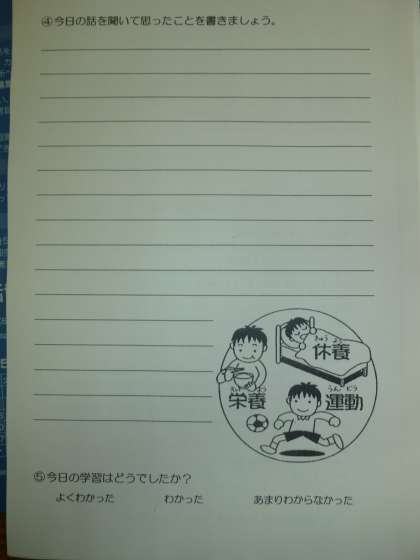 ④今日の話を聞いて思ったことを書きましょう。
きゅう よう
休養
えい よう
栄養
うん どう
運動
⑤今日の学習はどうでしたか?
よくわかった わかった あまりわからなかった